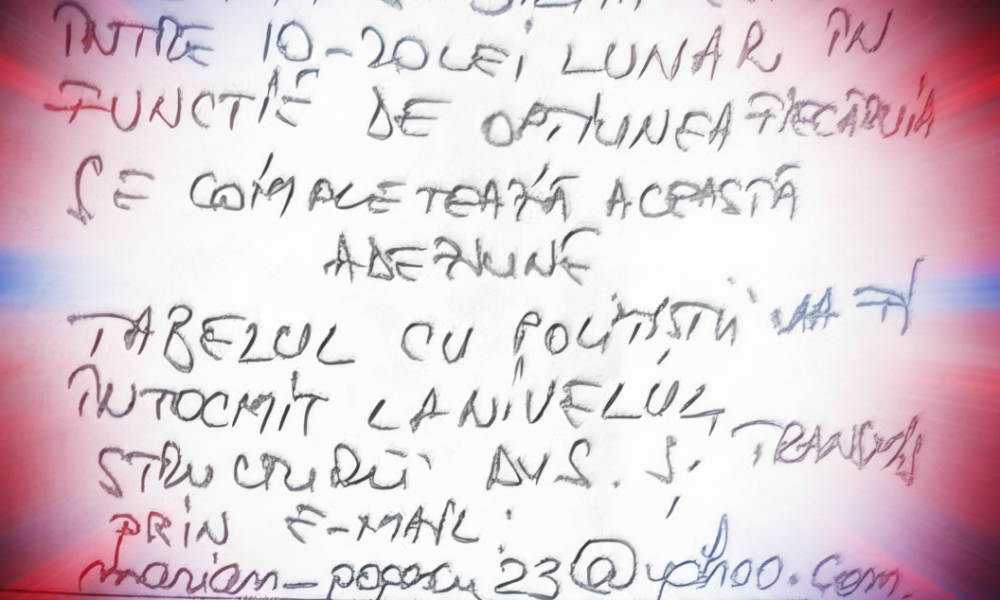 ÎNTRE 10-20 LEI LUNAR ÎN
FUNCTIE DE OPTIUNEA FIECĂRUIA
SE COMPLETEAZĂ ACEASTĂ
ADEZIUNE
TABELUL CU POLITISTII VA FI
ÎNTOCMIT LA NIVELUL
STRUCTURII DVS. SI TRANSMIS
PRIN E-MAIL:
marian_popescu23@yahoo.com